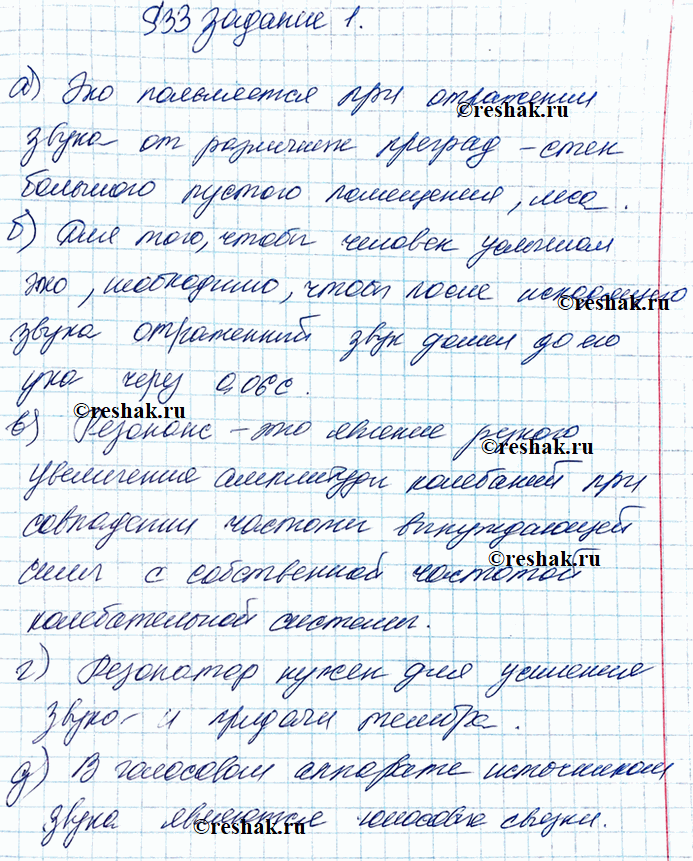 §33 Задание 1.
а) Эхо появляется при отражении
©reshak.ru
звука от различных преград – стен
большого пустого помещения, леса.
б) Для того, чтобы человек услышал
эхо, необходимо, чтобы после исходящего
©reshak.ru
звука отраженный звук дошел до его
уха через 0,06с.
©reshak.ru
в) Резонанс – это явление резкого
©reshak.ru
увеличения амплитуды колебаний при
совпадении частоты вынуждающей
силы с собственной частотой
©reshak.ru
колебательной системы.
г) Резонатор нужен для усиления
звука и придачи тембра.
д) В голосовом аппарате источником
звука являются голосовые связки.
©reshak.ru